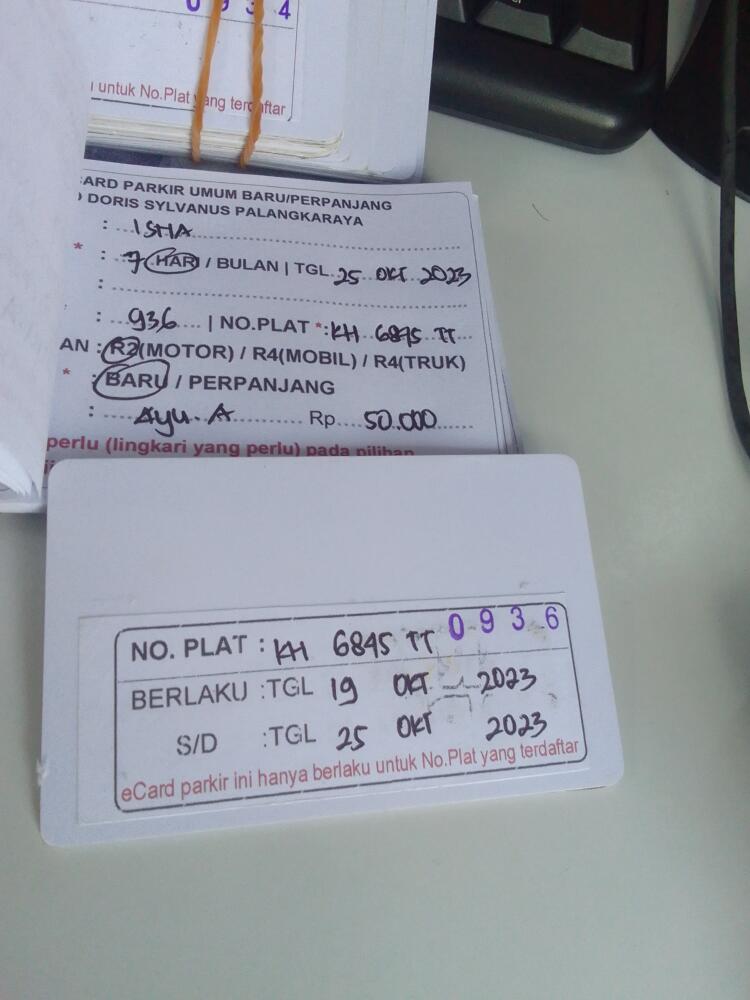 0 9 3 4
untuk No.Plat yang terdaftar
CARD PARKIR UMUM BARU/PERPANJANG
DORIS SYLVANUS PALANGKARAYA
: ISHA
* : 7 HARI / BULAN | TGL 25 OKT 2023
:
: 936 | NO.PLAT *: KH 6845 TT
AN : R2(MOTOR) / R4(MOBIL) / R4(TRUK)
* : BARU / PERPANJANG
: Ayu. A Rp 50.000
perlu (lingkari yang perlu) pada pilihan
0 9 3 6
NO. PLAT : KH 6845 TT
BERLAKU : TGL 19 OKT 2023
S/D : TGL 25 OKT 2023
eCard parkir ini hanya berlaku untuk No.Plat yang terdaftar